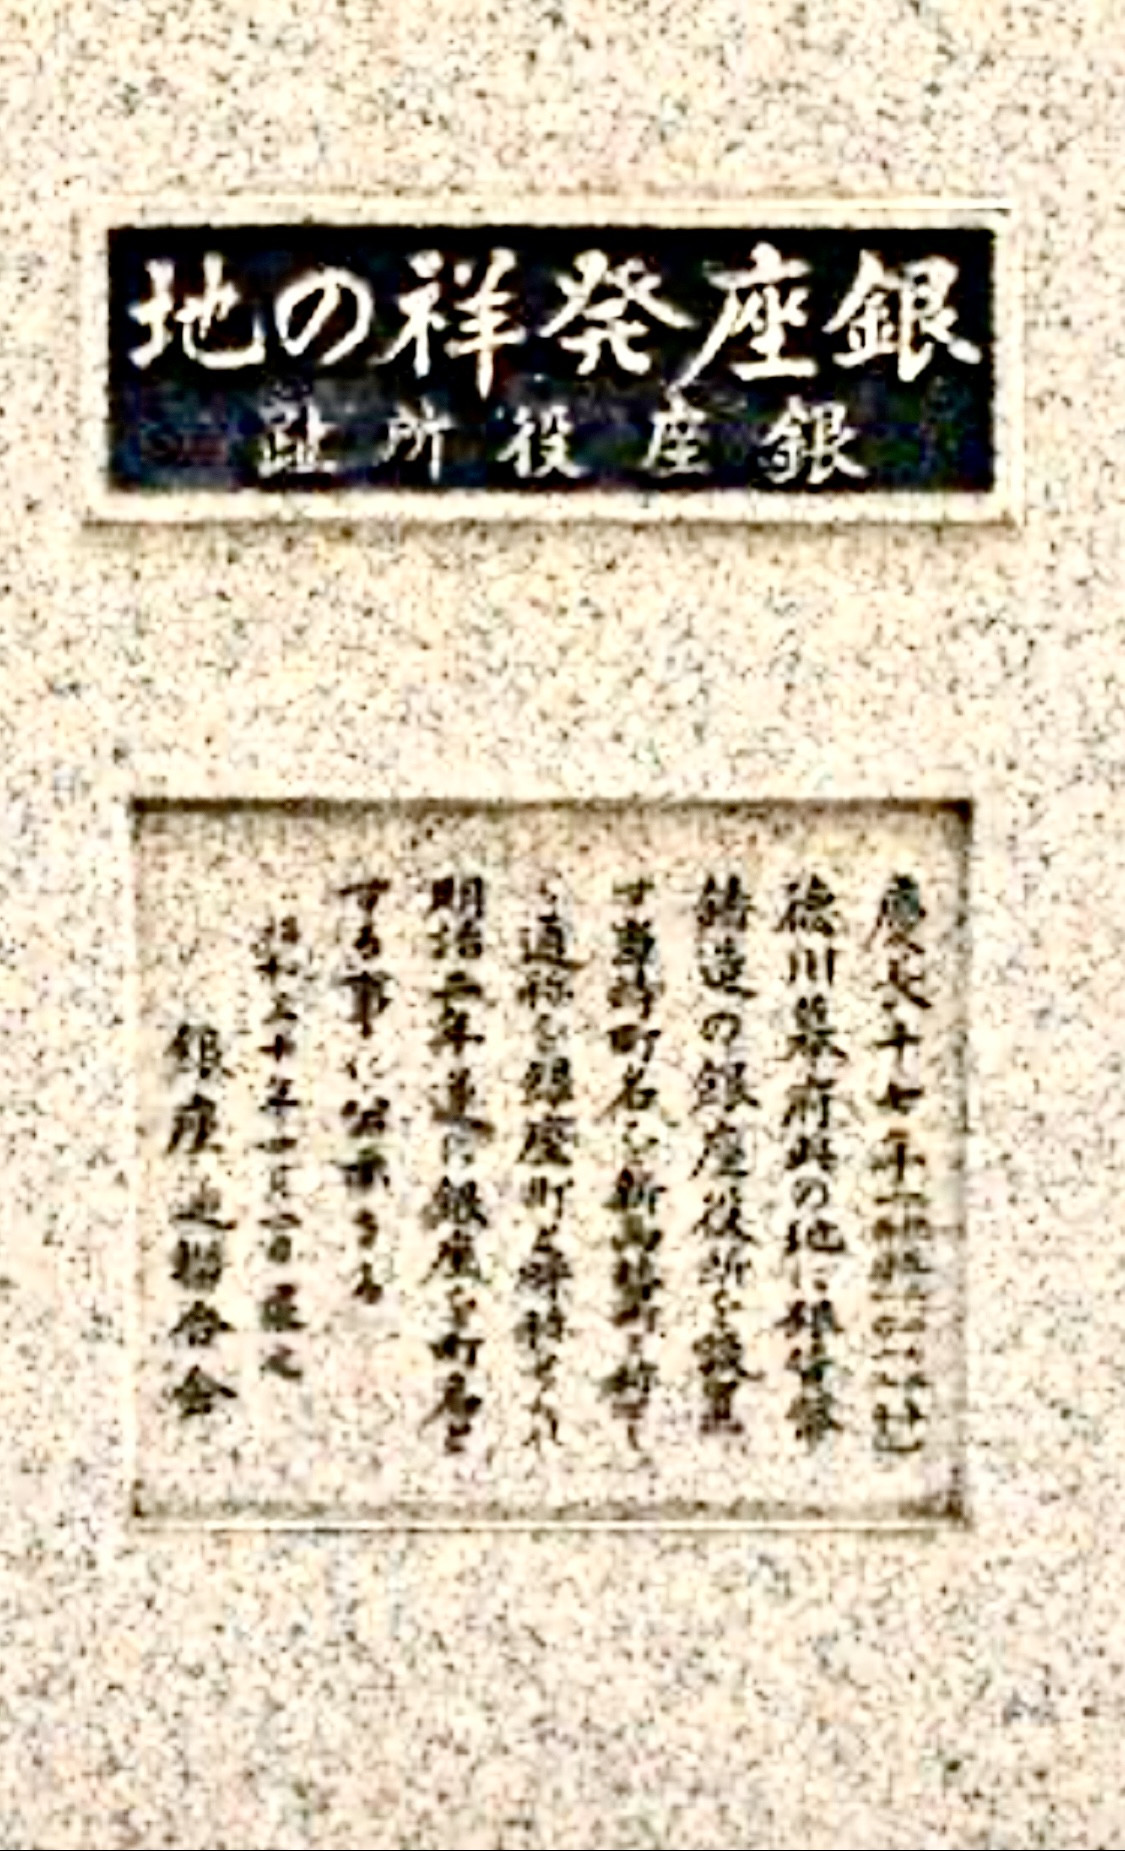 銀座発祥の地
銀座役所趾
慶長十七年
徳川幕府此の地に銀貨幣
鋳造の銀座役所を設置
す當時町名を新両替町と称し
通称を銀座町と呼称せられ
明治二年遂に銀座を町名と
する事に公示さる
昭和三十年四月一日建之
銀座通聯合会